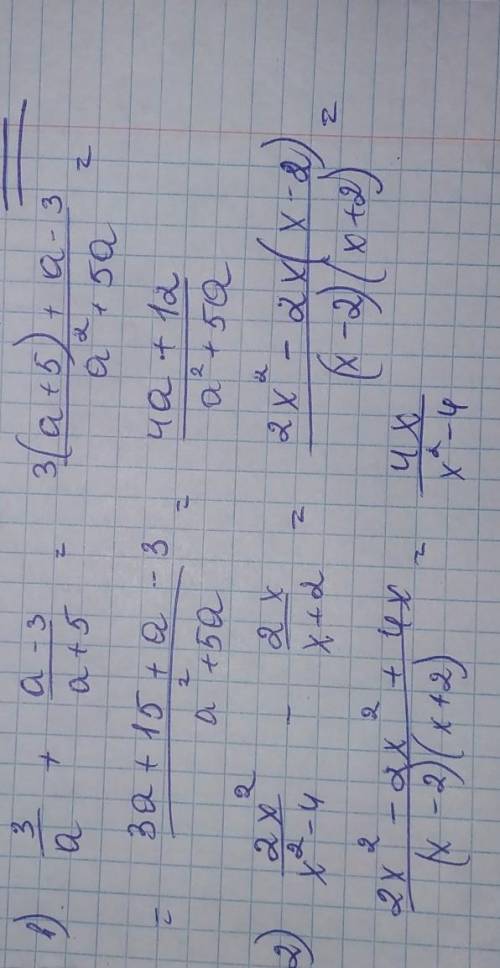 1) 3/a + (a-3)/(a+5) = (3(a+5)+a-3)/(a²+5a) =
= (3a+15+a-3)/(a²+5a) = (4a+12)/(a²+5a)
2) 2x²/(x²-4) - 2x/(x+2) = (2x²-2x(x-2))/((x-2)(x+2)) =
(2x²-2x²+4x)/((x-2)(x+2)) = 4x/(x²-4)